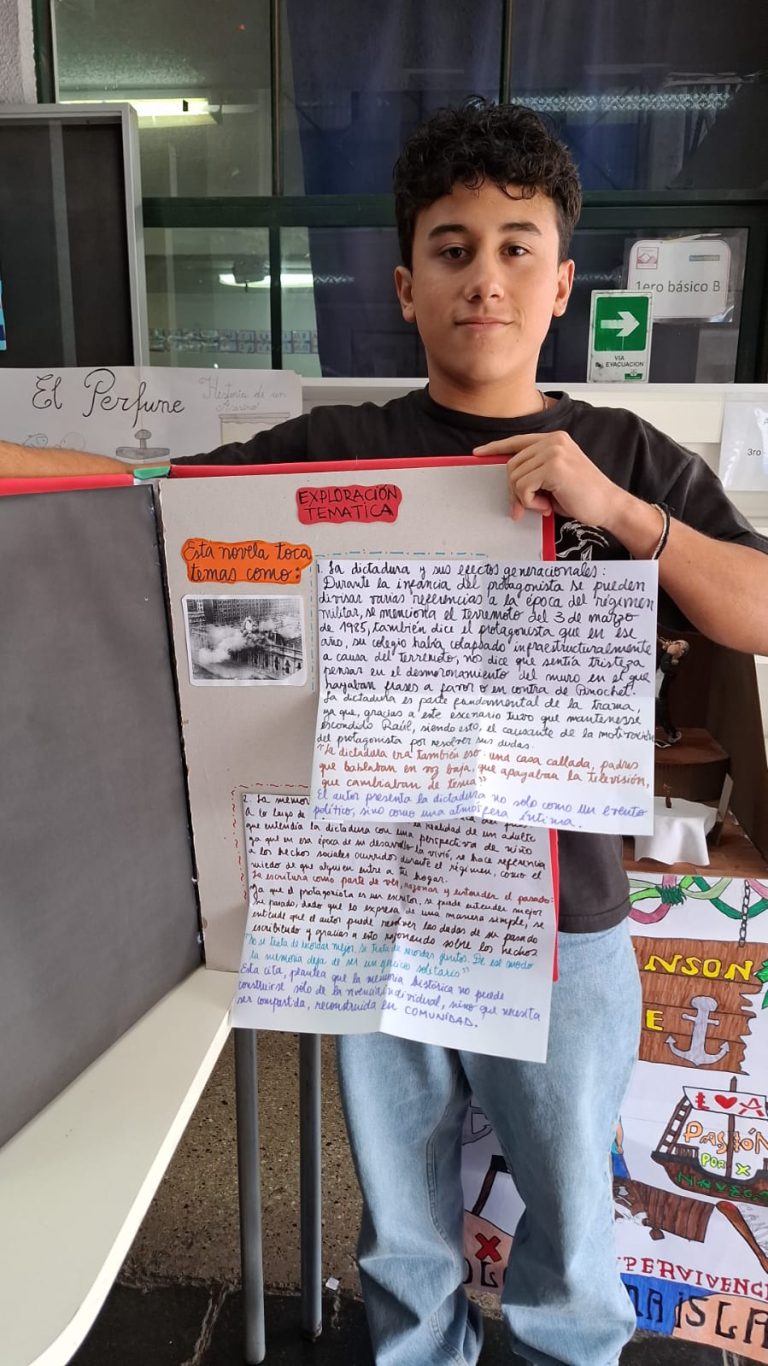 1ero básico B
VIA
EVACUACION
El Perfume
Historia de un
3ro
EXPLORACIÓN
TEMATICA
Esta novela toca
temas como:
1. La dictadura y sus efectos generacionales:
Durante la infancia del protagonista se pueden
divisar varias referencias a la época del régimen
militar, se menciona el terremoto del 3 de marzo
de 1985, también dice el protagonista que en ese
año, su colegio había colapsado infraestructuralmente
a causa del terremoto, no dice que sentía tristeza
pensar en el desmoronamiento del muro en el que
hayaban frases a favor o en contra de Pinochet.
La dictadura es parte fundamental de la trama,
ya que, gracias a este escenario tuvo que mantenerse
escondido Raúl, siendo esto, el causante de la motivación
del protagonista por resolver sus dudas.
"La dictadura era también eso: una casa callada, padres
que hablaban en voz baja, que apagaban la televisión,
que cambiaban de tema"
El autor presenta la dictadura no solo como un evento
político, sino como una atmósfera íntima.
2. La memor
a lo largo de
que entendía la dictadura con una perspectiva de niño
ya que en esa época de su desarrollo la vivió, se hace referencia
a los hechos sociales ocurridos durante el régimen, como el
miedo de que alguien entre a tu hogar.
La escritura como parte de ver, razonar y entender el pasado:
ya que el protagonista es un escritor, se puede entender mejor
su pasado, dado que lo expresa de una manera simple, se
entiende que el autor puede resolver las dudas de su pasado
escribiendo y gracias a esto razonando sobre los hechos
"No se trata de recordar mejor, se trata de recordar juntos. De ese modo
la memoria deja de ser un ejercicio solitario"
Esta cita, plantea que la memoria histórica no puede
construirse solo de la vivencia individual, sino que necesita
ser compartida, reconstruida en COMUNIDAD.
NSON
E
PASIÓN
POR X
PERVIVENCI
ISLA